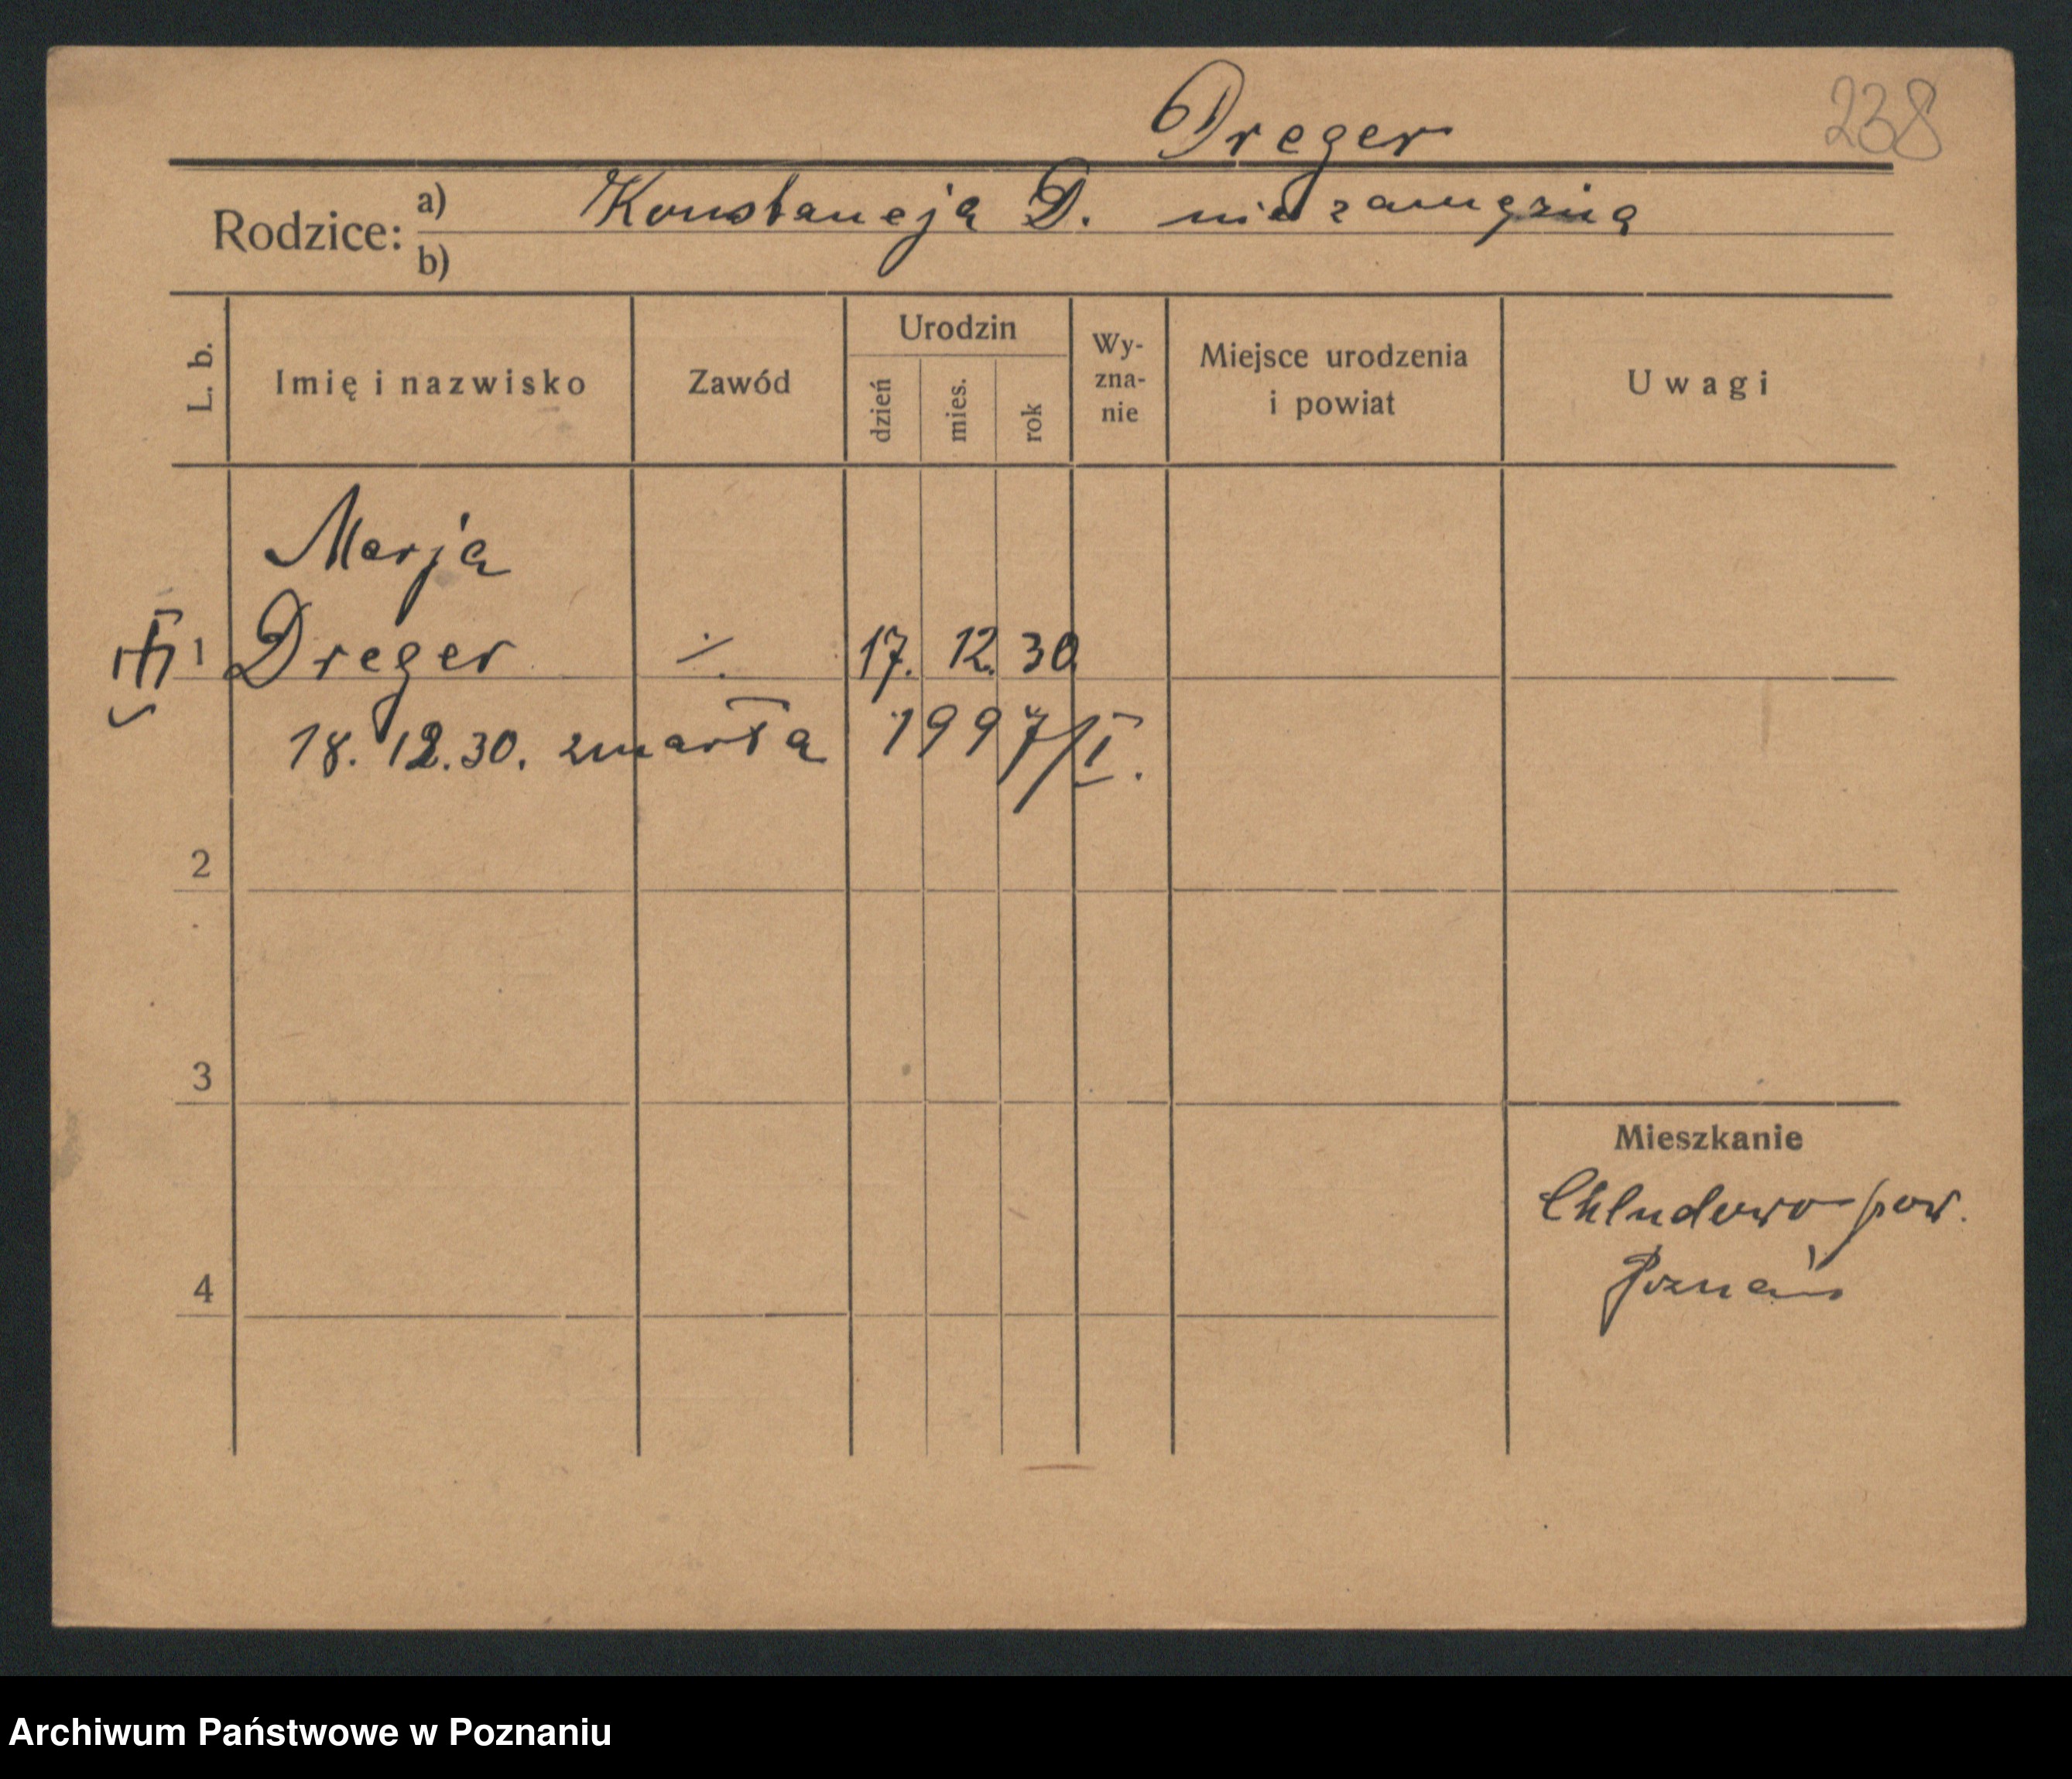 Dreger
238
Rodzice: a) Konstancja D. niezamężna
b)
L. b.
Imię i nazwisko
Zawód
Urodzin
dzień
mies.
rok
Wy-
zna-
nie
Miejsce urodzenia
i powiat
Uwagi
Marja
1 Dreger ./. 17. 12. 30
18. 12. 30. zmarła 1997/I.
2
3
4
Mieszkanie
Chludowo pow.
Poznań
Archiwum Państwowe w Poznaniu